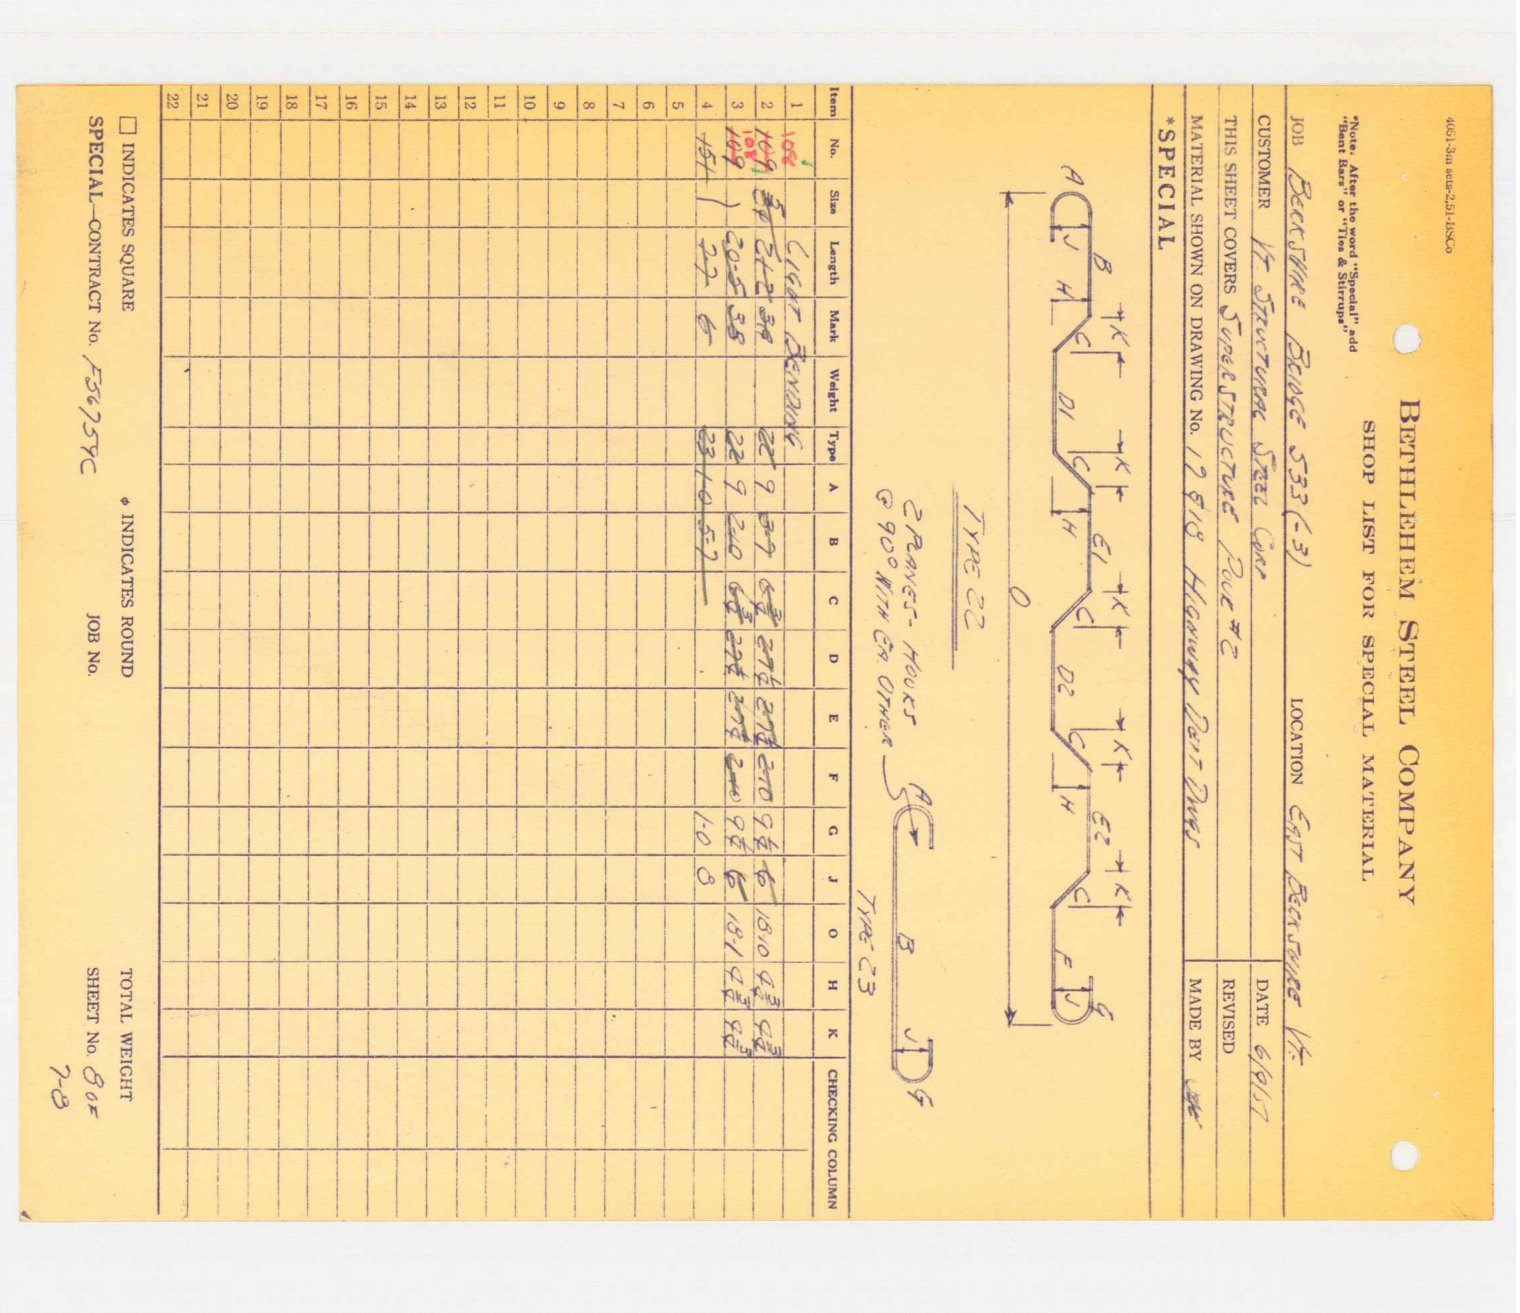 4051-3m sets-2,51-BSCo
BETHLEHEM STEEL COMPANY
SHOP LIST FOR SPECIAL MATERIAL
*Note, After the word "Special" add
"Bent Bars" or "Ties & Stirrups"
JOB BERKSHIRE BRIDGE S33(-3) LOCATION EAST BERKSHIRE VT.
CUSTOMER VT. STRUCTURAL STEEL CORP DATE 6/9/57
THIS SHEET COVERS SUPERSTRUCTURE POUR #2 REVISED
MATERIAL SHOWN ON DRAWING No. 17 & 18 HIGHWAY DEPT DWGS MADE BY
*SPECIAL
K K K K K
A B C C E1 C C E2 C G
J H D1 H D2 H F J
O
TYPE 22
2 PLANES - HOOKS
@ 90° WITH EA. OTHER
A B J G
TYPE 23
Item No. Size Length Mark Weight Type A B C D E F G J O H K CHECKING COLUMN
1 108 LIGHT BENDING
2 109 21-2 38 22 9 3-7 6 3/4 27 1/2 27 1/2 2-10 9 1/2 6 18-10 4 3/4 4 3/4
3 109 108 20-5 38 22 9 2-10 6 3/4 27 1/2 27 1/2 2-10 9 1/2 6 18-1 4 3/4 4 3/4
4 151 7-7 6 23 1-0 5-7 1-0 8
5
6
7
8
9
10
11
12
13
14
15
16
17
18
19
20
21
22
□ INDICATES SQUARE ϕ INDICATES ROUND TOTAL WEIGHT
SPECIAL—CONTRACT No. F56759C JOB No. SHEET No. 8 OF
7-8